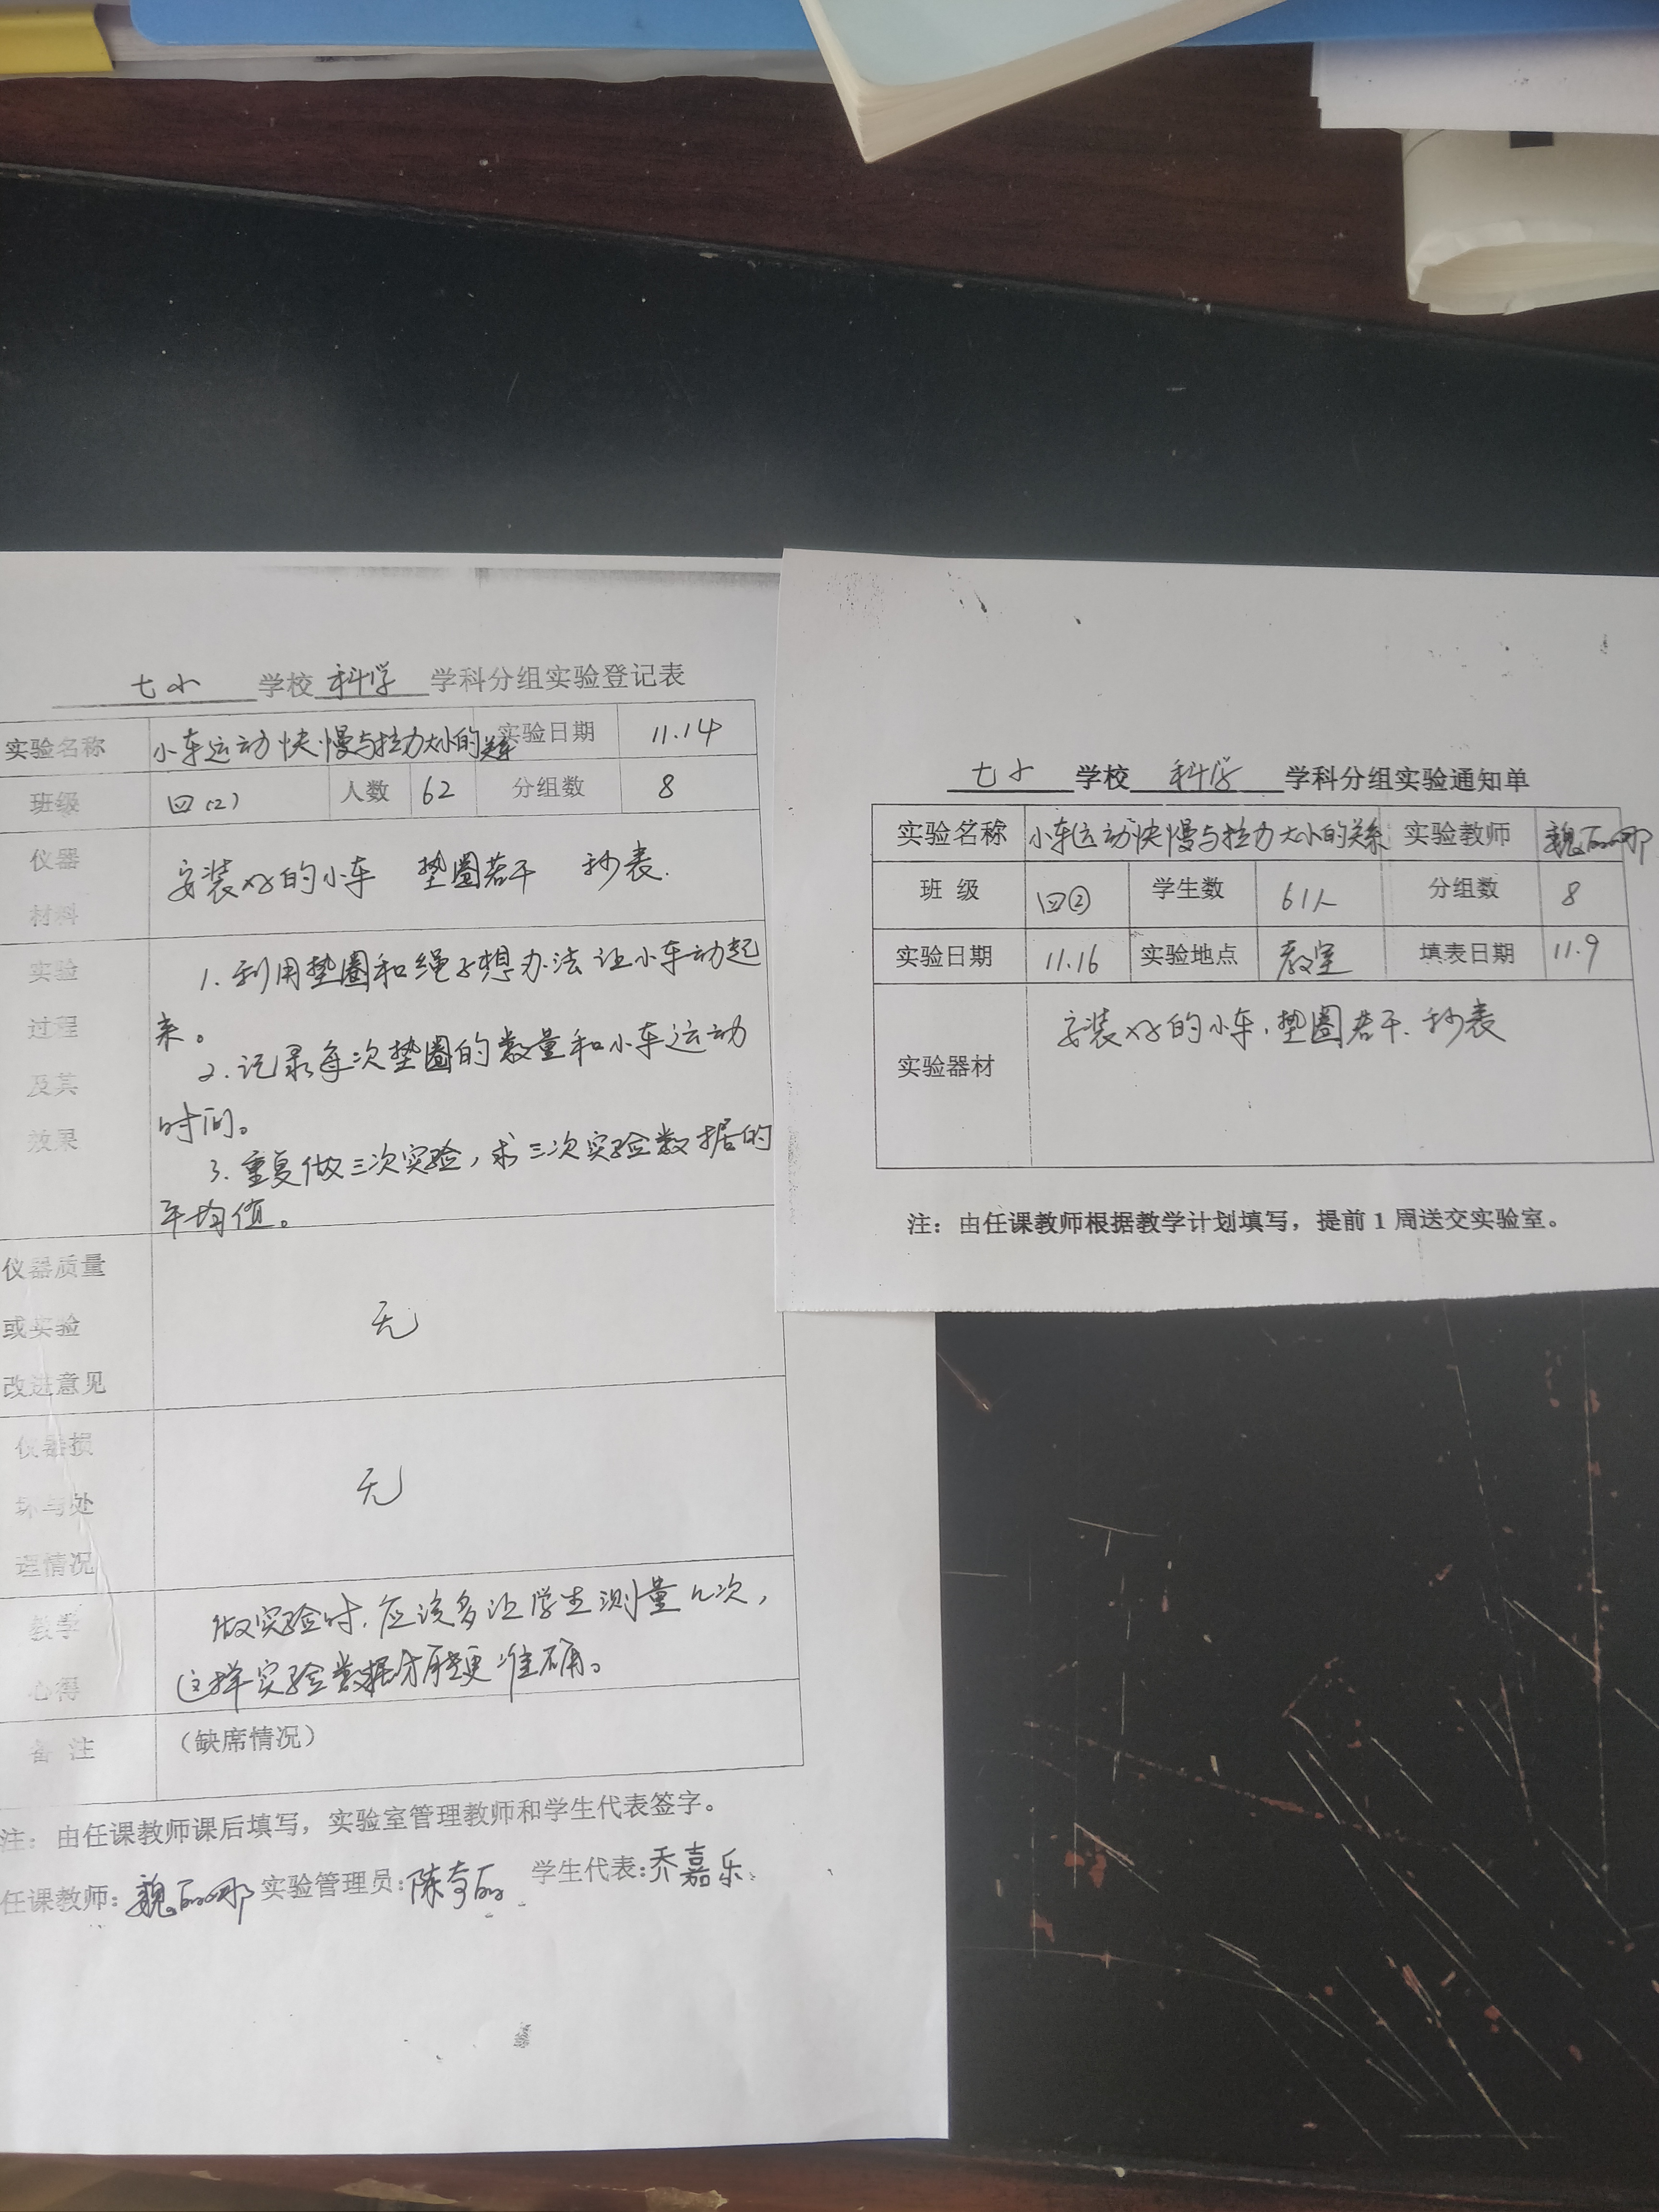 七小 学校 科学 学科分组实验登记表
实验名称 小车运动快慢与拉力大小的关系 实验日期 11.14
班级 四(2) 人数 62 分组数 8
仪器材料 安装好的小车 垫圈若干 秒表.
实验过程及其效果
1.利用垫圈和绳子想办法让小车动起
来。
2.记录每次垫圈的数量和小车运动
时间。
3.重复做三次实验,求三次实验数据的
平均值。
仪器质量或实验改进意见 无
仪器损坏与处理情况 无
教学心得
做实验时,应该多让学生测量几次,
这样实验数据才能更准确。
备注 (缺席情况)
注:由任课教师课后填写,实验室管理教师和学生代表签字。
任课教师:魏丽娜 实验管理员:陈奇丽 学生代表:乔嘉乐
七小 学校 科学 学科分组实验通知单
实验名称 小车运动快慢与拉力大小的关系 实验教师 魏丽娜
班 级 四② 学生数 61人 分组数 8
实验日期 11.16 实验地点 教室 填表日期 11.9
实验器材 安装好的小车、垫圈若干、秒表
注:由任课教师根据教学计划填写,提前1周送交实验室。